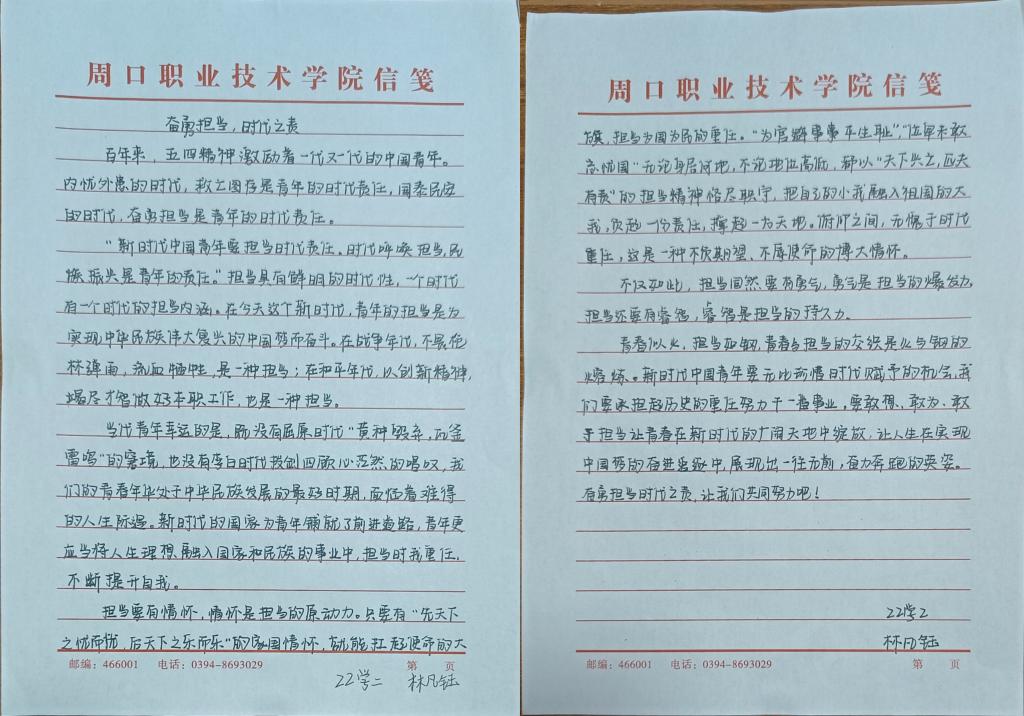 周口职业技术学院信笺
奋勇担当，时代之责
百年来，五四精神激励着一代又一代的中国青年。
内忧外患的时代，救亡图存是青年的时代责任，国泰民安
的时代，奋勇担当是青年的时代责任。
“新时代中国青年要担当时代责任。时代呼唤担当，民
族振兴是青年的责任。”担当具有鲜明的时代性，一个时代
有一个时代的担当内涵。在今天这个新时代，青年的担当是为
实现中华民族伟大复兴的中国梦而奋斗。在战争年代，不畏枪
林弹雨，热血牺牲，是一种担当；在和平年代，以创新精神，
竭尽才智做好本职工作，也是一种担当。
当代青年幸运的是，既没有屈原时代“黄钟毁弃，瓦釜
雷鸣”的窘境，也没有李白时代拔剑四顾心茫然的喟叹，我
们的青春年华处于中华民族发展的最好时期，面临着难得
的人生际遇。新时代的国家为青年铺就了前进道路，青年更
应当将人生理想融入国家和民族的事业中，担当时我重任，
不断提升自我。
担当要有情怀，情怀是担当的原动力。只要有“先天下
之忧而忧，后天下之乐而乐”的家国情怀，就能扛起使命的大
邮编：466001 电话：0394-8693029 第 页
22学二 林凡钰
周口职业技术学院信笺
旗，担当为国为民的重任。“为官避事平生耻”，“位卑未敢
忘忧国”无论身居何地，不论地位高低，都以“天下兴亡，匹夫
有责”的担当精神恪尽职守，把自己的小我融入祖国的大
我，负起一份责任，撑起一方天地。俯仰之间，无愧于时代
重任，这是一种不负期望、不辱使命的博大情怀。
不仅如此，担当固然要有勇气，勇气是担当的爆发力，
担当还要有睿智，睿智是担当的持久力。
青春似火，担当如钢，青春与担当的交织是火与钢的
熔炼。新时代中国青年要无比珍惜时代赋予的机会，我
们要承担起历史的重任努力干一番事业，要敢想、敢为、敢
于担当让青春在新时代的广阔天地中绽放，让人生在实现
中国梦的奋进追逐中，展现出一往无前，奋力奔跑的英姿。
有勇担当时代之责，让我们共同努力吧！
22学2
林凡钰
邮编：466001 电话：0394-8693029 第 页